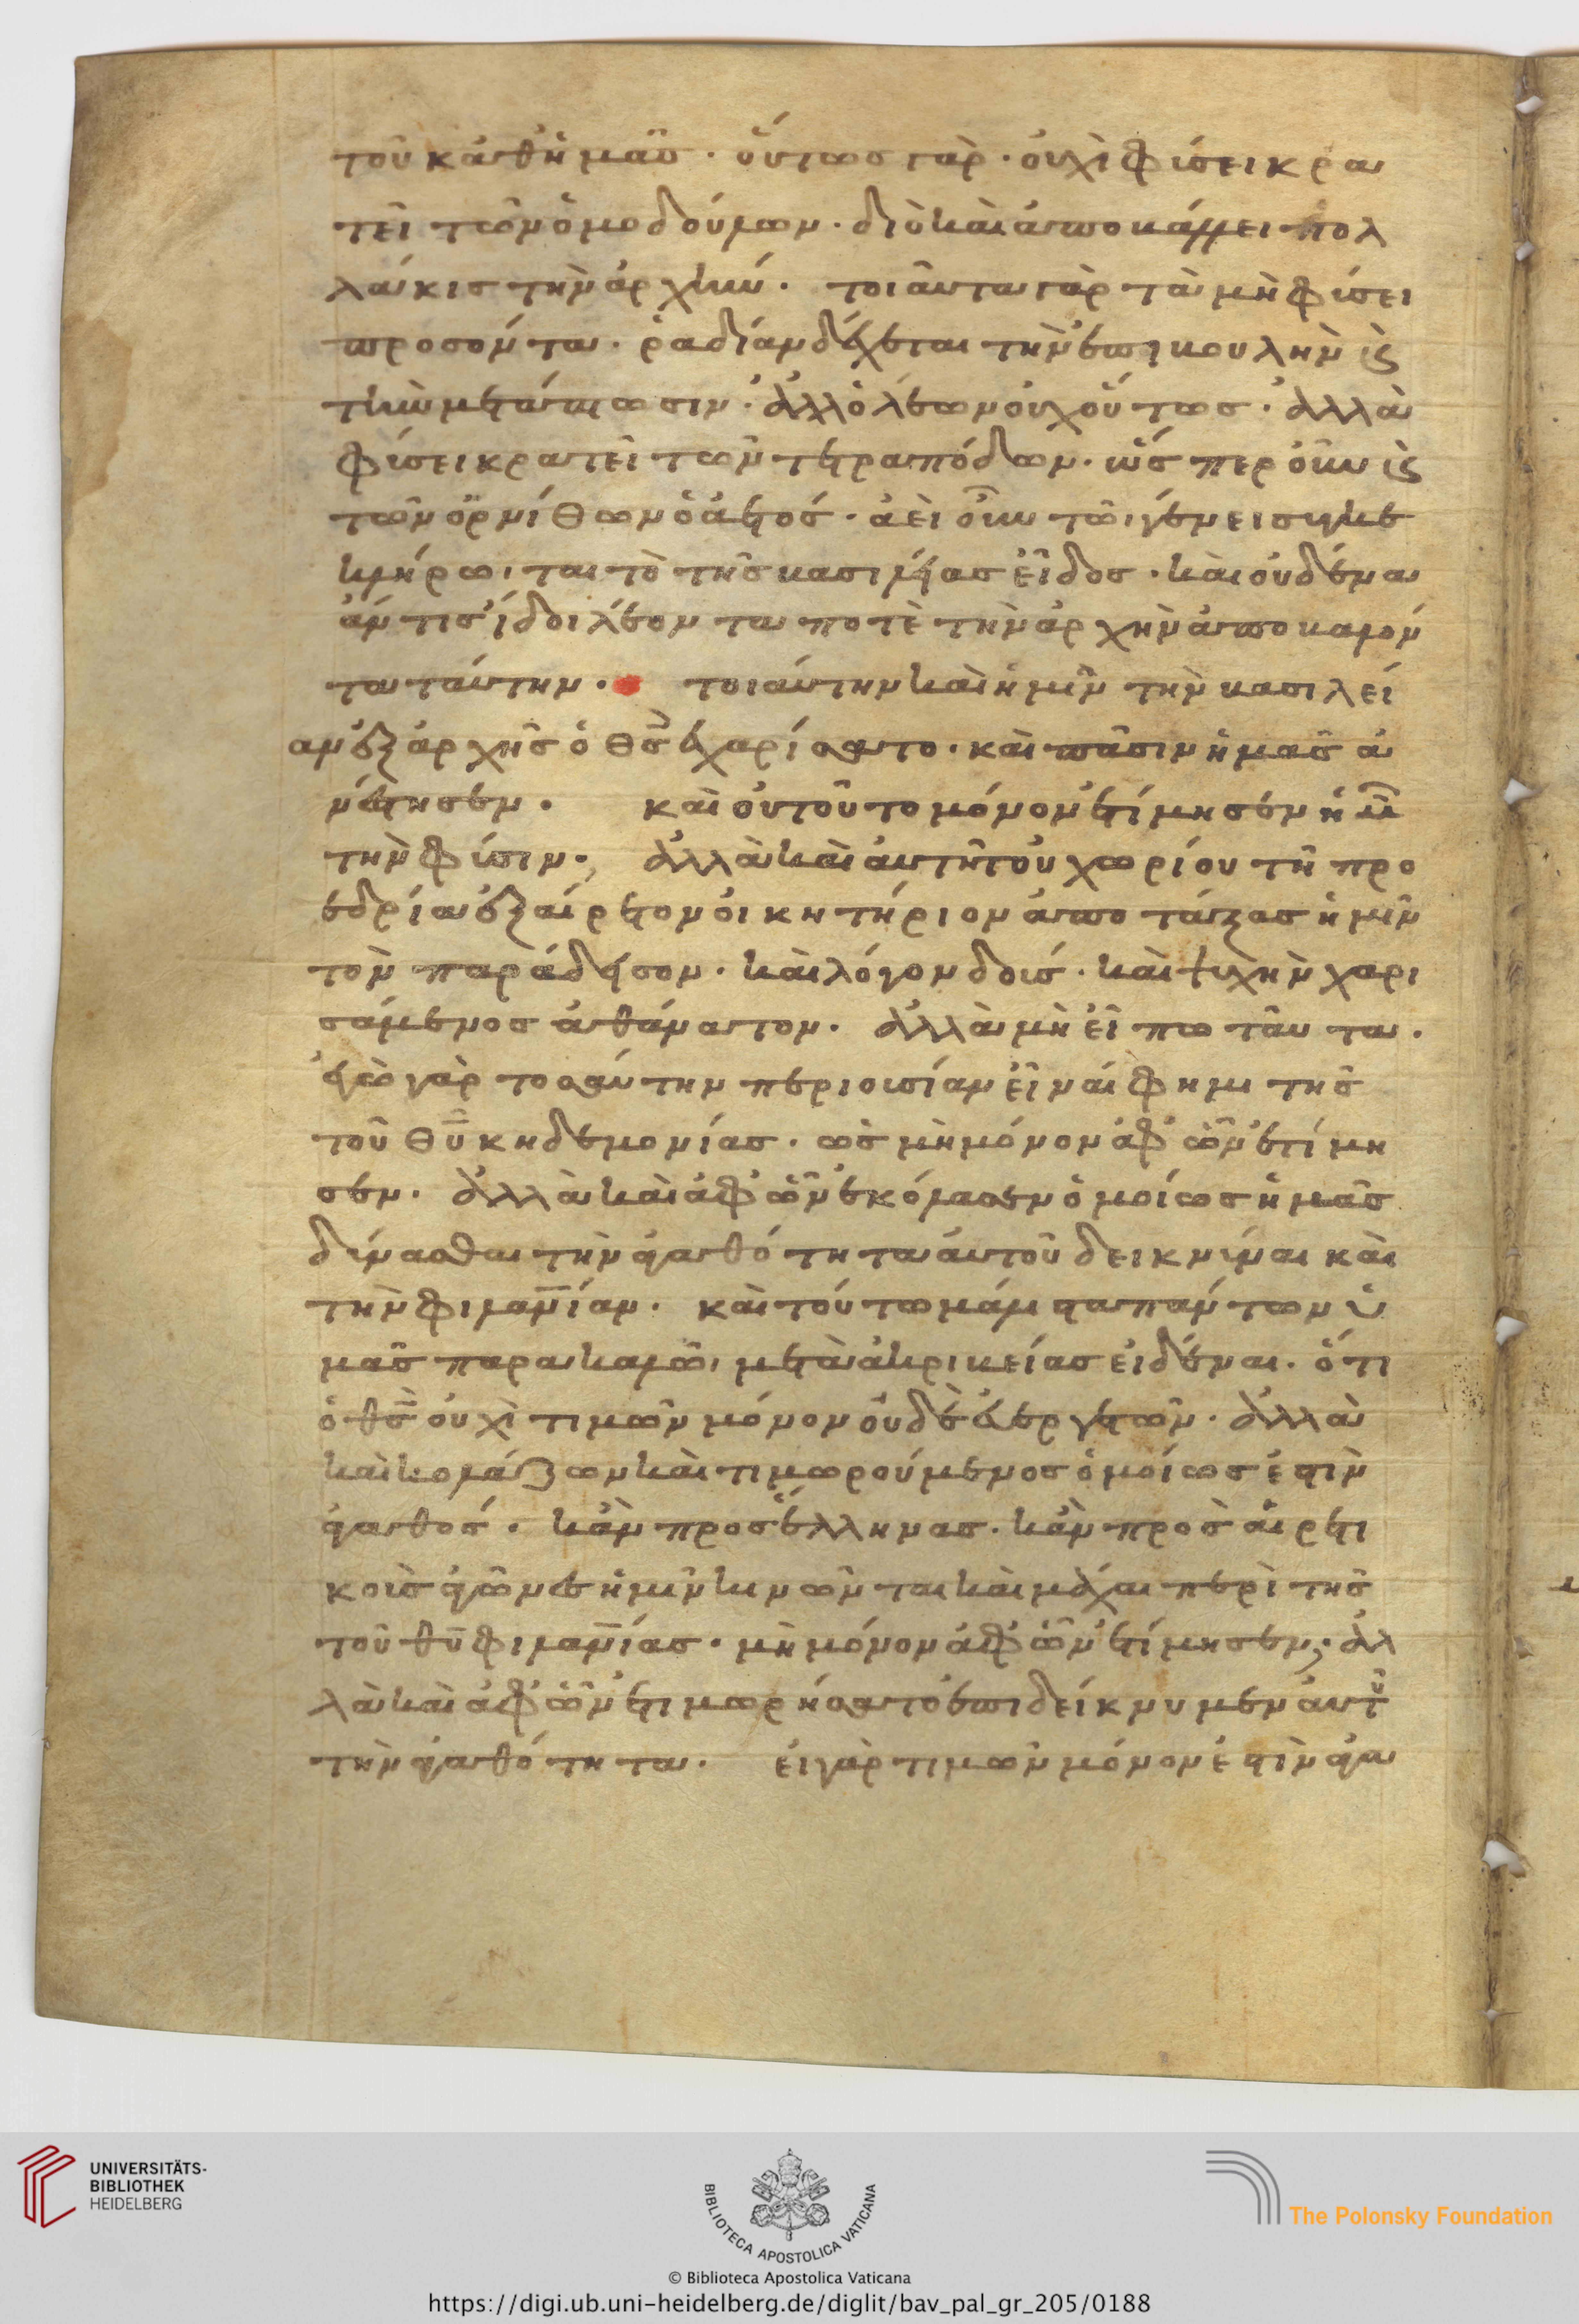 του καθ ἡμᾶσ· οὗτοσ γὰρ· οὐχὶ φύσει κρα
τεῖ τῶν ὁμοδούλων· διὸ καὶ ἀποβάλλει πολ
λάκισ τὴν ἀρχήν· τοιαῦτα γὰρ τὰ μὴ φύσει
προσόντα· ῥαδίαν δέχεται τὴν ἐπιβουλὴν κ(αὶ)
τὴν μετάπτωσιν· ἀλλ ὁ λέων οὐχ οὕτωσ· ἀλλὰ
φύσει κρατεῖ τῶν τετραπόδων· ὥσπερ οὖν κ(αὶ)
τῶν ὀρνίθων ὁ ἀετόσ· ἀεὶ οὖν τῶι γένει συγκε
κλήρωται τὸ τῆσ βασιλείασ εἶδοσ· καὶ οὐδένα
ἄν τισ ἴδοι λέοντα ποτὲ τὴν ἀρχὴν ἀποβαλόν
τα ταύτην· τοιαύτην καὶ ἡμῖν τὴν βασιλεί
αν ἐξ ἀρχῆσ ὁ θσ ἐχαρίσατο· καὶ πᾶσιν ἡμᾶσ ἀ
νέστησεν· καὶ οὐ τοῦτο μόνον ἐτίμησεν ἡμῶν
τὴν φύσιν· ἀλλὰ καὶ αὐτῆ τοῦ χωρίου τῆ προ
εδρία ἐξαίρετον οἰκητήριον ἀποτάξασ ἡμῖν
τὸν παράδεισον· καὶ λόγον δούσ· καὶ ψυχὴν χαρι
σάμενοσ ἀθάνατον· ἀλλὰ μὴ εἴπω ταῦτα·
ἐγὼ γὰρ τοσαύτην περιουσίαν εἶναί φημι τῆσ
τοῦ θυ κηδεμονίασ· ὡσ μὴ μόνον ἀφ ὧν ἐτίμη
σεν· ἀλλὰ καὶ ἀφ ὧν ἐκόλασεν ὁμοίωσ ἡμᾶσ
δύνασθαι τὴν ἀγαθότητα αὐτοῦ δεικνύναι καὶ
τὴν φιλανίαν· καὶ τοῦτο μάλιστα πάντων ὑ
μᾶσ παρακαλῶ, μετὰ ἀκριβείασ εἰδέναι· ὅτι
ὁ θσ οὐχὶ τιμῶν μόνον οὐδὲ εὐεργετῶν· ἀλλὰ
καὶ κολάζων καὶ τιμωρούμενοσ ὁμοίωσ ἐστὶν
ἀγαθόσ· κἂν πρὸσ ἕλληνασ· κἂν πρὸσ αἱρετι
κοὺσ ἀγῶνεσ ἡμῖν κινῶνται καὶ μάχαι περὶ τῆσ
τοῦ θυ φιλανίασ· μὴ μόνον ἀφ ὧν ἐτίμησεν· ἀλ
λὰ καὶ ἀφ ὧν ἐτιμωρήσατο ἐπιδείκνυμεν αὐτοῦ
τὴν ἀγαθότητα· εἰ γὰρ τιμῶν μόνον ἐστὶν ἀγα
UNIVERSITÄTS-
BIBLIOTHEK
HEIDELBERG
BIBLIOTECA APOSTOLICA VATICANA
The Polonsky Foundation
© Biblioteca Apostolica Vaticana
https://digi.ub.uni-heidelberg.de/diglit/bav_pal_gr_205/0188